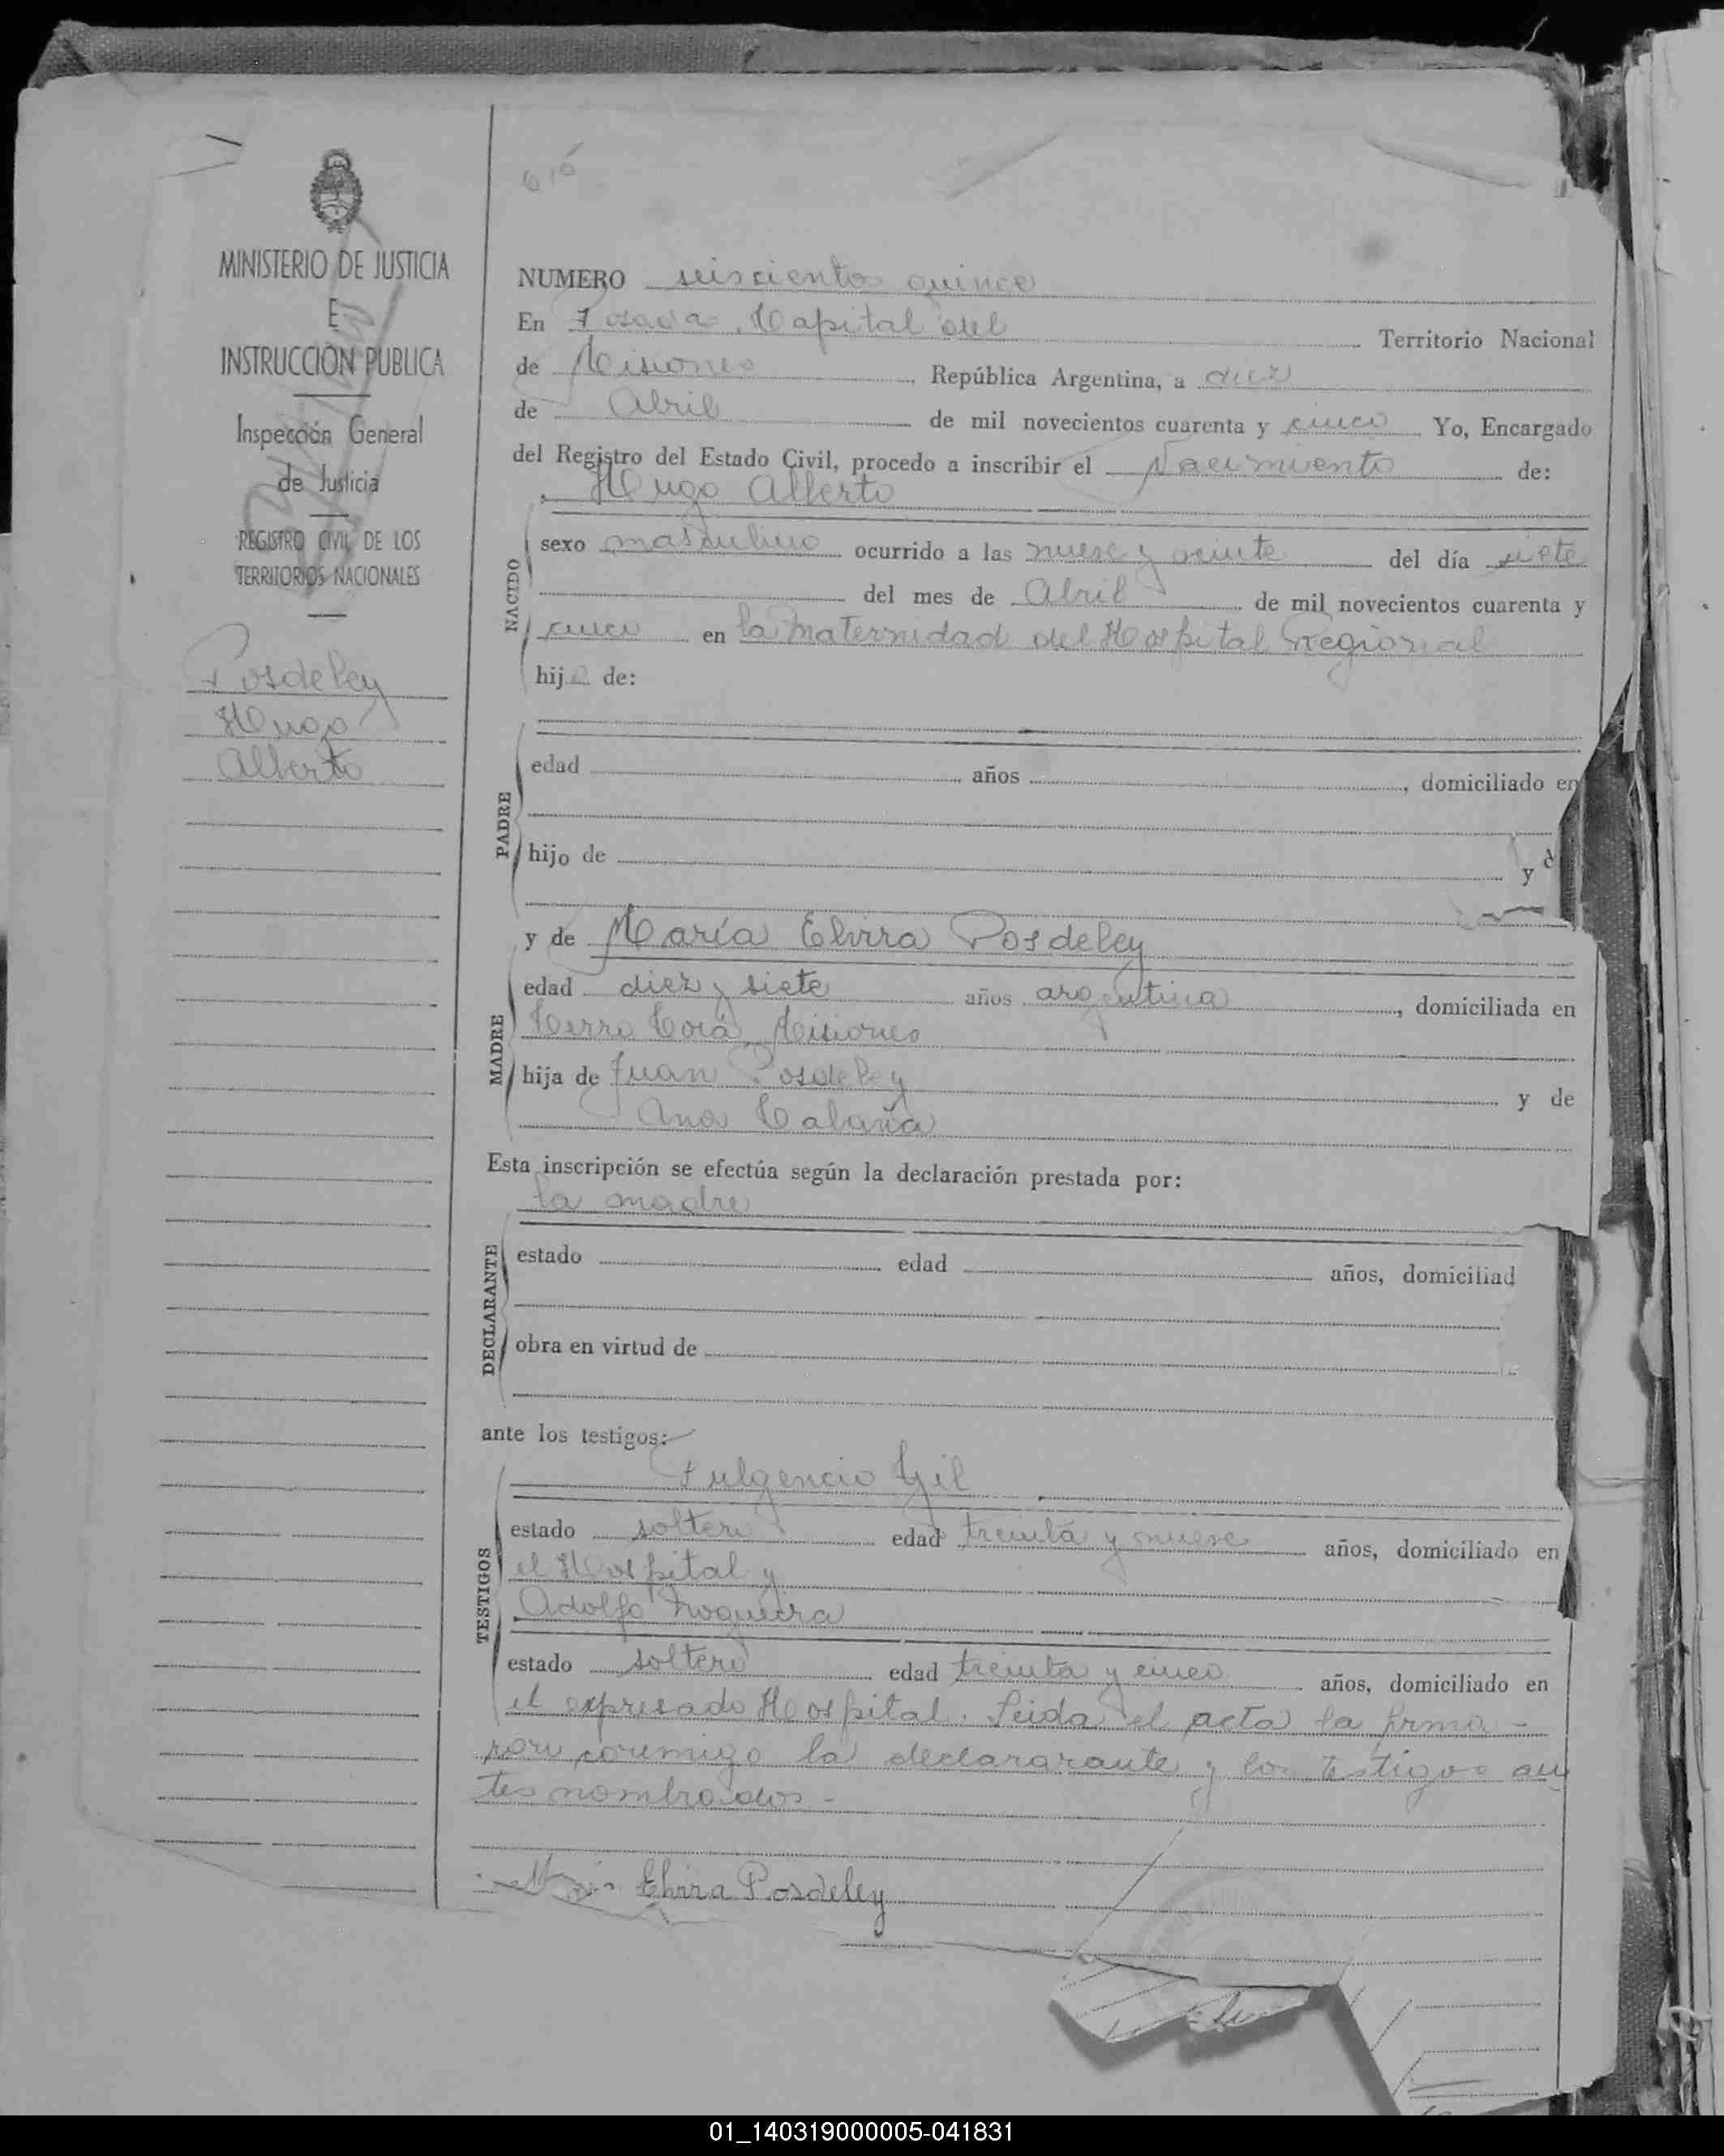 MINISTERIO DE JUSTICIA
E
INSTRUCCION PUBLICA
Inspección General
de Justicia
REGISTRO CIVIL DE LOS
TERRITORIOS NACIONALES
Posdeley
Hugo
Alberto
NUMERO seiscientos quince
En Posadas, Capital del Territorio Nacional
de Misiones, República Argentina, a diez
de Abril de mil novecientos cuarenta y cinco Yo, Encargado
del Registro del Estado Civil, procedo a inscribir el Nacimiento de:
Hugo Alberto
NACIDO
sexo masculino ocurrido a las nueve y veinte del día siete
del mes de Abril de mil novecientos cuarenta y
cinco en la Maternidad del Hospital Regional
hijo de:
PADRE
edad años, domiciliado en
hijo de y d
y de María Elvira Posdeley
MADRE
edad diez y siete años argentina, domiciliada en
Cerro Corá, Misiones
hija de Juan Posdeley y de
Ana
Esta inscripción se efectúa según la declaración prestada por:
la madre
DECLARANTE
estado edad años, domiciliad
obra en virtud de
ante los testigos:
Fulgencio Gil
TESTIGOS
estado soltero edad treinta y nueve años, domiciliado en
el Hospital y
Adolfo Nogueira
estado soltero edad treinta y cinco años, domiciliado en
el expresado Hospital. Leida el acta la firma-
ron conmigo la declararante y los testigos an
tes nombrados.-
María Elvira Posdeley
01_140319000005-041831